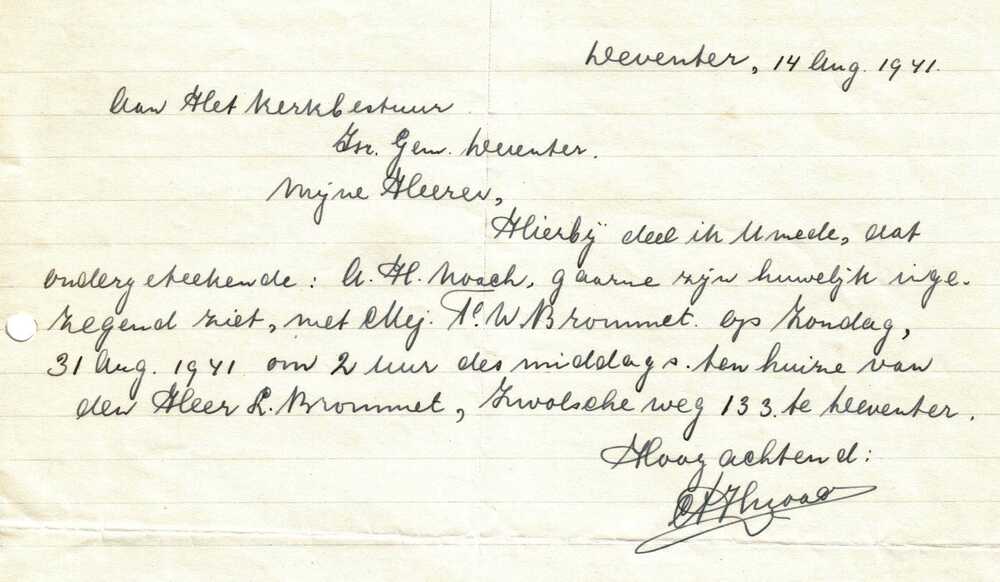 Deventer, 14 Aug. 1941.
Aan Het Kerkbestuur
Isr. Gem. Deventer.
Mijne Heeren,
Hierbij deel ik U mede, dat
ondergeteekende: A. H. Noach, gaarne zijn huwelijk inge-
zegend ziet, met Mej. W. Brommet. op Zondag,
31 Aug. 1941 om 2 uur des middags. ten huize van
den Heer L. Brommet, Zwolsche weg 133. te Deventer.
Hoog achtend: